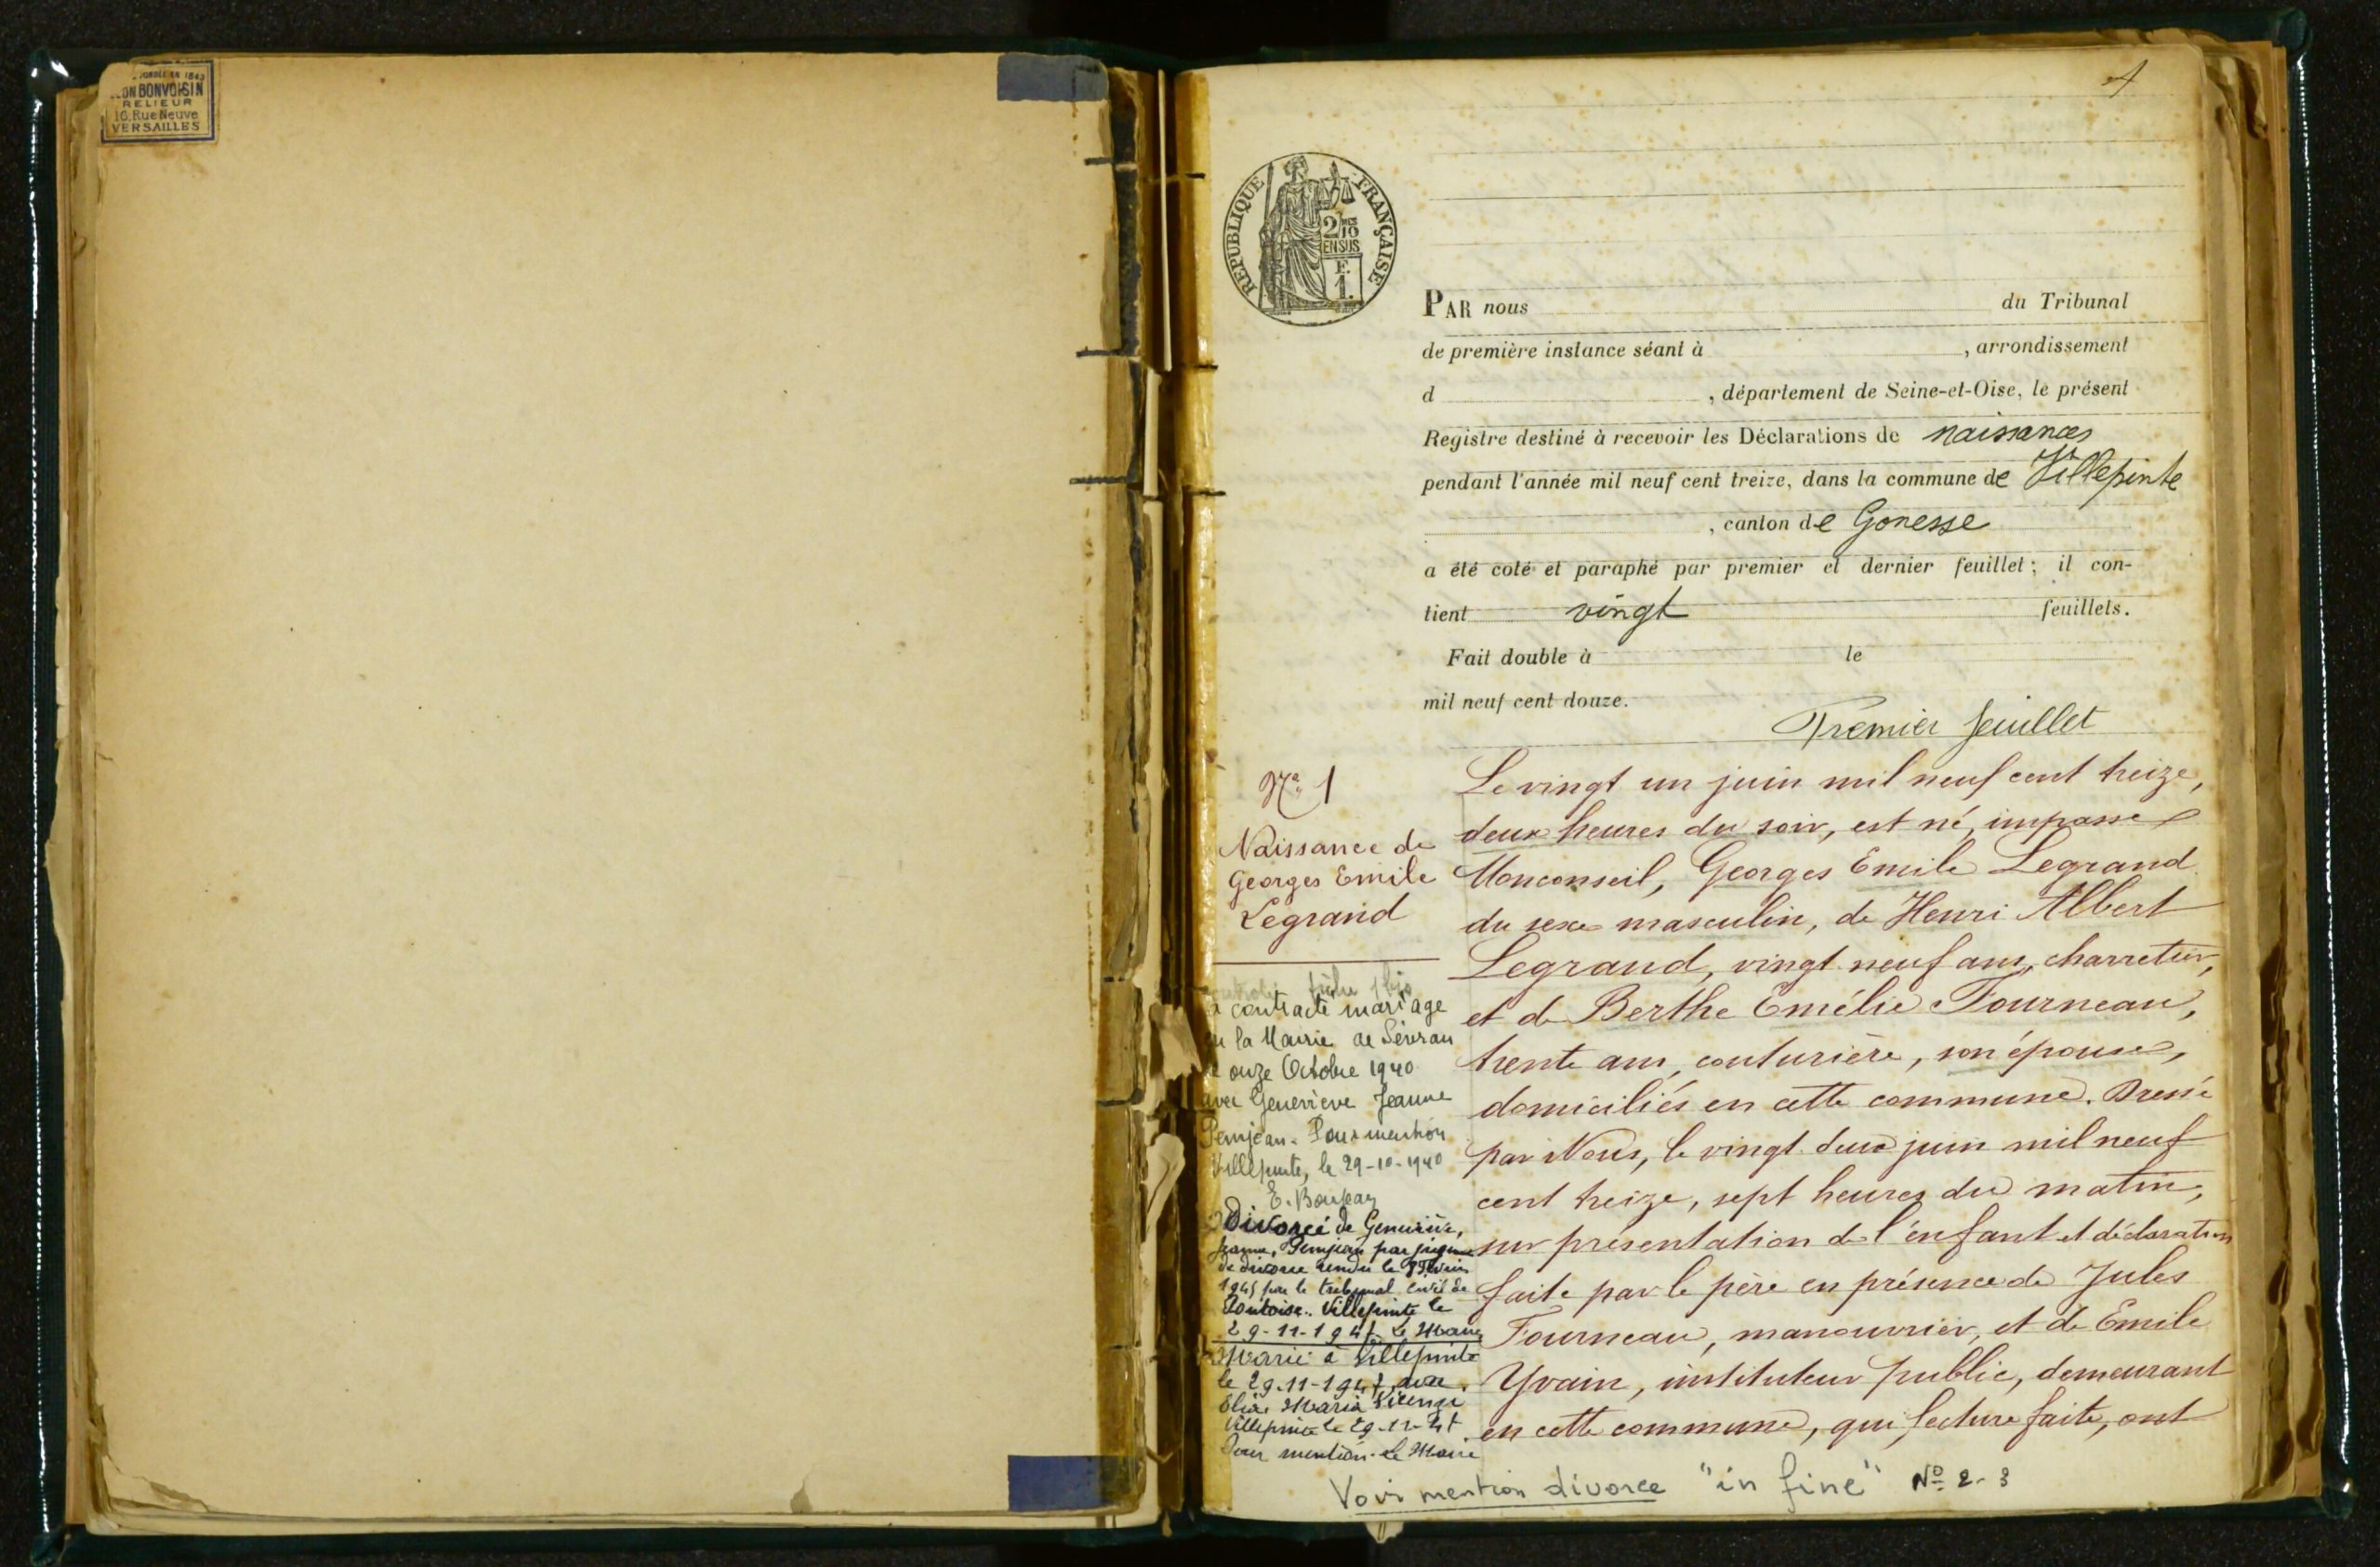 FONDÉE EN 1843
ON BONVOISIN
RELIEUR
16, Rue Neuve
VERSAILLES
REPUBLIQUE FRANÇAISE
2/10
EN SUS
F.
1.
PAR nous du Tribunal
de première instance séant à , arrondissement
d , département de Seine-et-Oise, le présent
Registre destiné à recevoir les Déclarations de naissances
pendant l'année mil neuf cent treize, dans la commune de Villepinte
, canton de Gonesse
a été coté et paraphé par premier et dernier feuillet; il con-
tient vingt feuillets.
Fait double à le
mil neuf cent douze.
Premier feuillet
No 1
Naissance de
Georges Emile
Legrand
a contracté mariage
en la Mairie de Sevran
le onze Octobre 1940
avec Geneviève Jeanne
Penjean. Pour mention
Villepinte, le 29-10-1940
Divorcé de Geneviève,
Jeanne, Penjean par jugement
de divorce rendu le
1945 par le tribunal civil de
Pontoise. Villepinte le
29-11-1947 Le Maire
Marié à Villepinte
le 29-11-1947 avec
Maria
Villepinte le 29-11-47
Pour mention. Le Maire
Le vingt un juin mil neuf cent treize,
deux heures du soir, est né, impasse
Monconseil, Georges Emile Legrand
du sexe masculin, de Henri Albert
Legrand, vingt neuf ans, charretier,
et de Berthe Emélie Fourneau,
trente ans, couturière, son épouse,
domiciliés en cette commune. Dressé
par Nous, le vingt deux juin mil neuf
cent treize, sept heures du matin,
sur présentation de l'enfant et déclaration
faite par le père en présence de Jules
Fourneau, manouvrier, et de Emile
Yvain, instituteur public, demeurant
en cette commune, qui, lecture faite, ont
Voir mention divorce "in fine" No 2-3